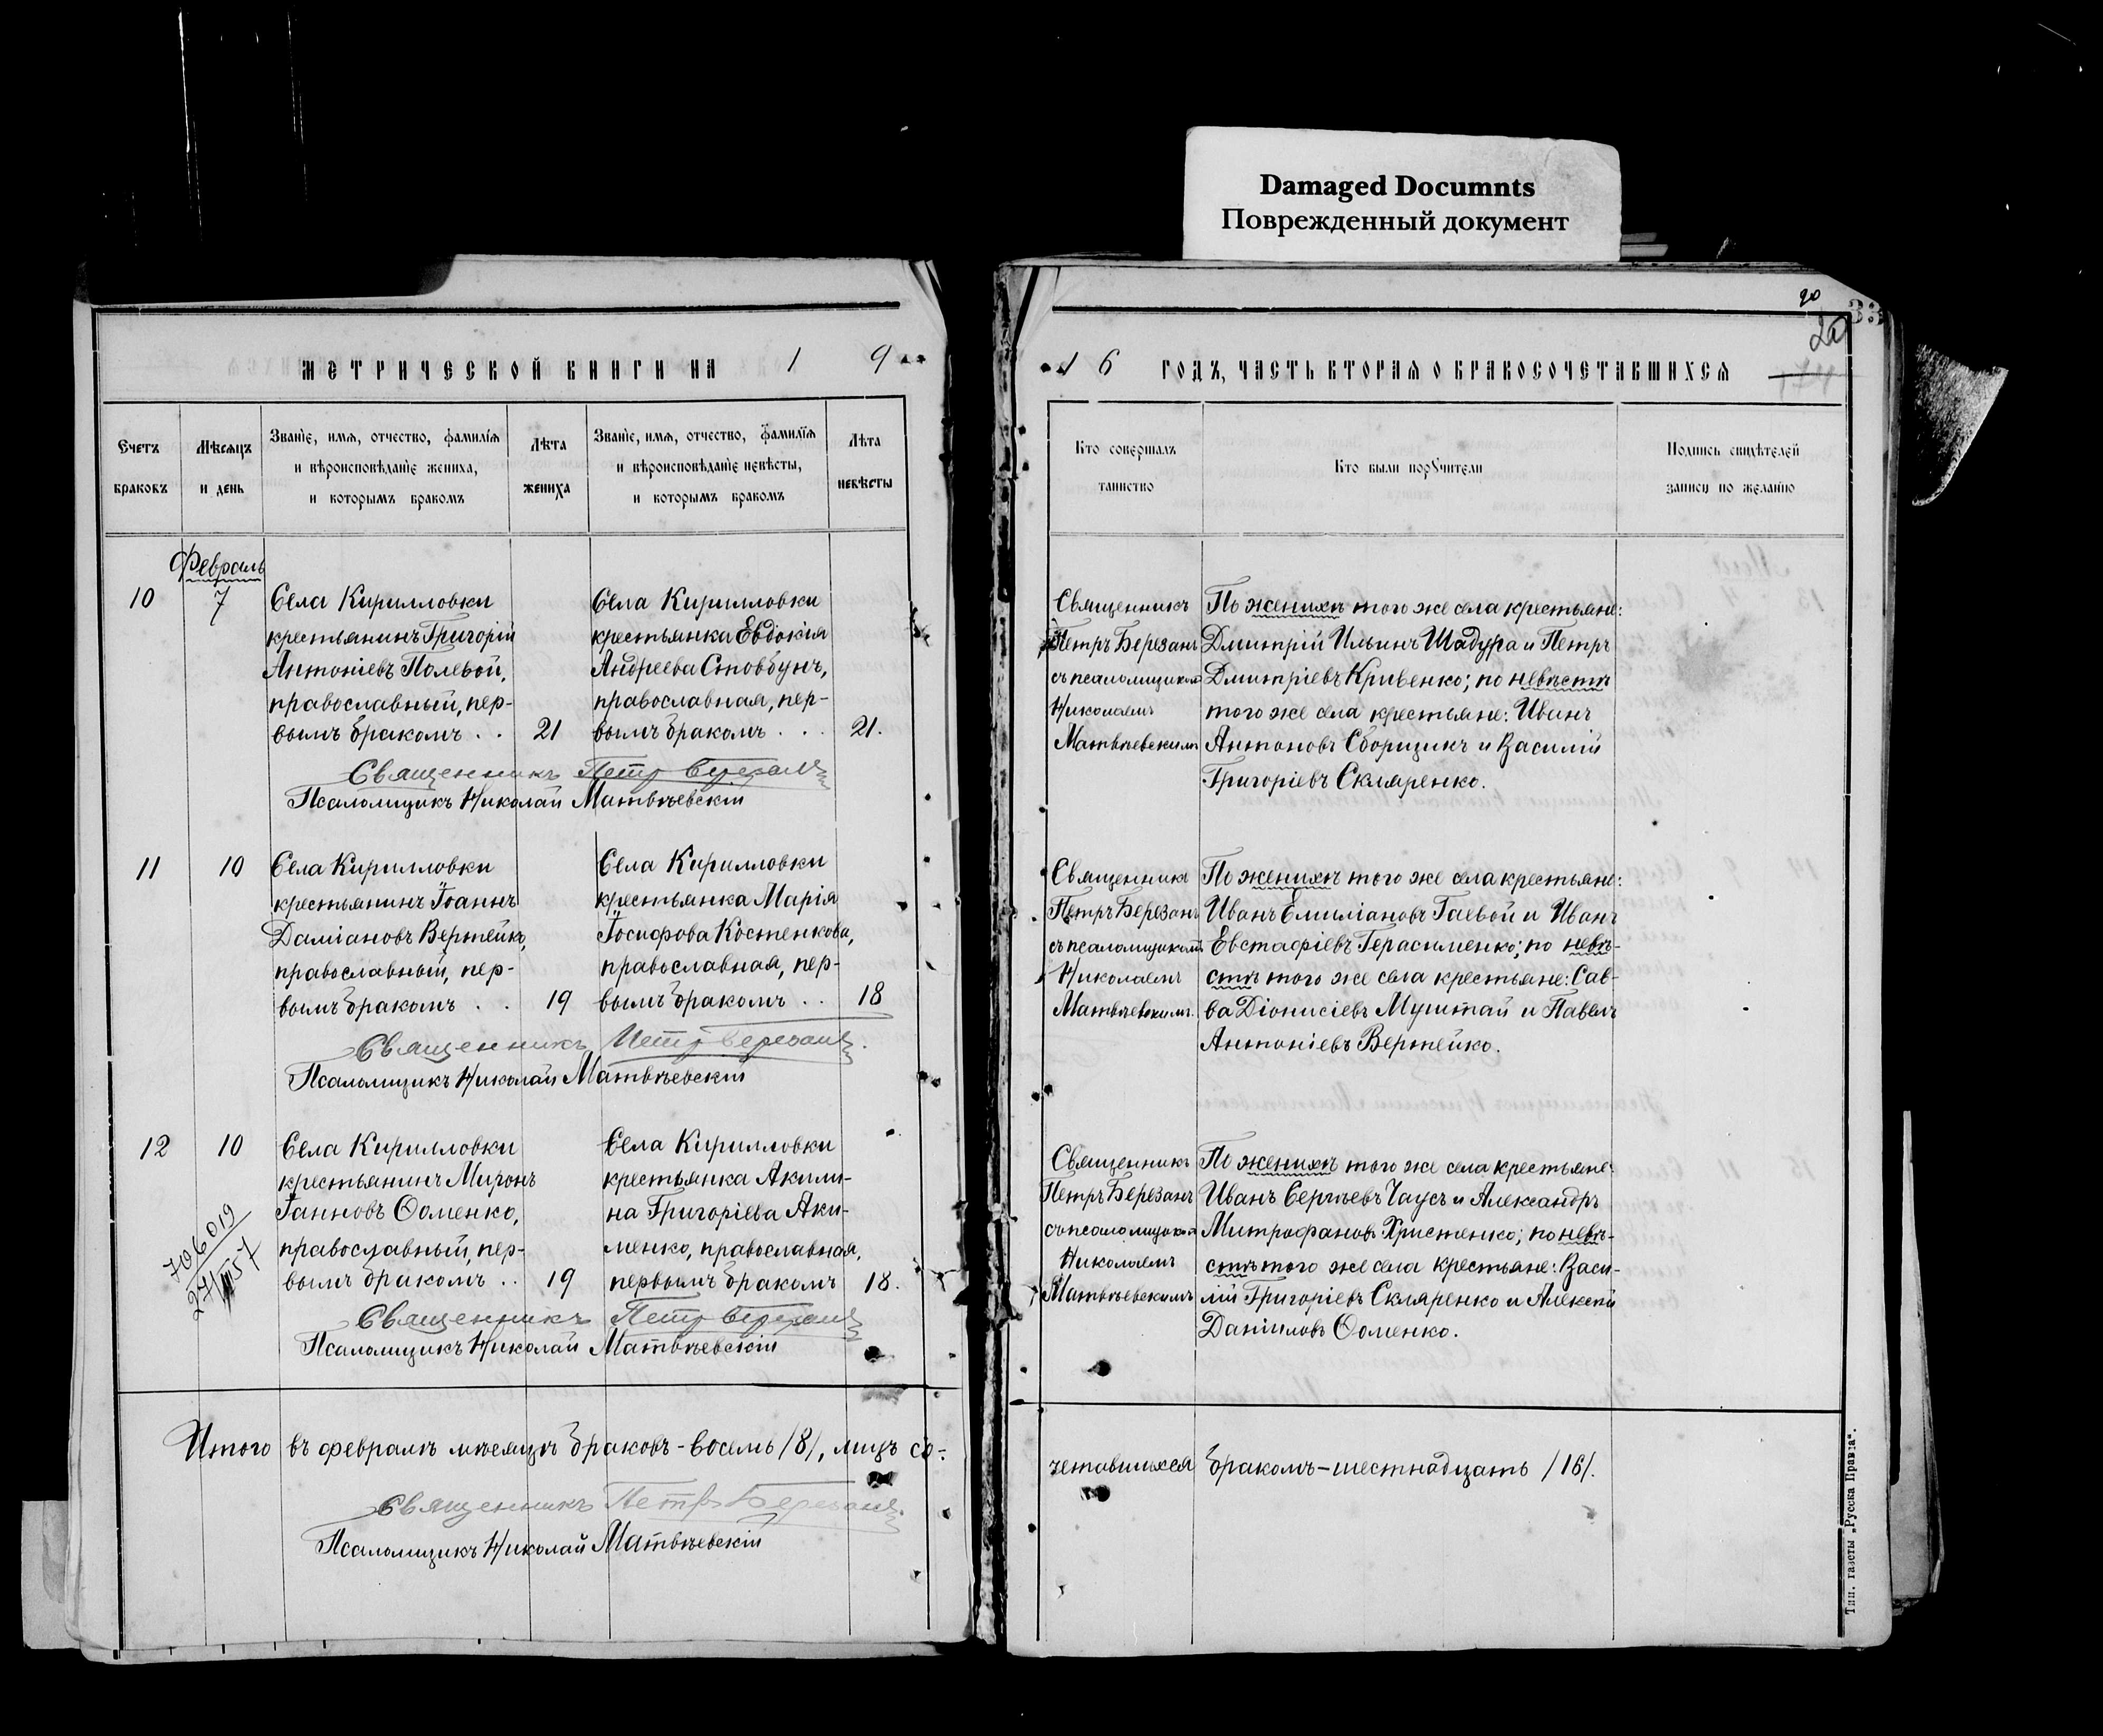 Damaged Documnts
Поврежденный документ
МЕТРИЧЕСКОЙ КНИГИ НА 1 9
Счетъ браковъ
Мѣсяцъ и день
Званіе, имя, отчество, фамилія
и вѣроисповѣданіе жениха,
и которымъ бракомъ
Лѣта жениха
Званіе, имя, отчество, фамилія
и вѣроисповѣданіе невѣсты,
и которымъ бракомъ
Лѣта невѣсты
Февраль
10
7
Села Кирилловки
крестьянинъ Григорій
Антоніевъ Полевой,
православный, пер-
вымъ бракомъ . .
21
Села Кирилловки
крестьянка Евдокія
Андреева Стовбунъ,
православная, пер-
вымъ бракомъ . . .
21.
Священникъ Петръ Березанъ
Псаломщикъ Николай Матвѣевскій
11
10
Села Кирилловки
крестьянинъ Іоаннъ
Даміановъ Вертейко,
православный, пер-
вымъ бракомъ . .
19
Села Кирилловки
крестьянка Марія
Іосифова Костенкова,
православная, пер-
вымъ бракомъ . .
18
Священникъ Петръ Березанъ
Псаломщикъ Николай Матвѣевскій
12
10
Села Кирилловки
крестьянинъ Миронъ
Іанновъ Ѳоменко,
православный, пер-
вымъ бракомъ . .
19
Села Кирилловки
крестьянка Акили-
на Григоріева Аки-
менко, православная,
первымъ бракомъ
18.
706019
Священникъ Петръ Березанъ
Псаломщикъ Николай Матвѣевскій
Итого въ февралѣ мѣсяцѣ браковъ - восемь /8/, лицъ со-
Священникъ Петръ Березанъ
Псаломщикъ Николай Матвѣевскій
20
33
20
174
1 6 ГОДЪ, ЧАСТЬ ВТОРАЯ О БРАКОСОЧЕТАВШИХСЯ
Кто совершалъ
таинство
Кто были поручители
Подпись свидѣтелей
записи по желанію
Священникъ
Петръ Березанъ
съ псаломщикомъ
Николаемъ
Матвѣевскимъ
По женихѣ того же села крестьяне:
Дмитрій Ильинъ Шадура и Петръ
Дмитріевъ Кривенко; по невѣстѣ
того же села крестьяне: Иванъ
Антоновъ Сборщикъ и Василій
Григоріевъ Скляренко.
Священникъ
Петръ Березанъ
съ псаломщикомъ
Николаемъ
Матвѣевскимъ.
По женихѣ того же села крестьяне:
Иванъ Емиліановъ Гаевой и Иванъ
Евстафіевъ Герасименко; по невѣ-
стѣ того же села крестьяне: Сав-
ва Діонисіевъ Муштай и Павелъ
Антоніевъ Вертейко.
Священникъ
Петръ Березанъ
съ псаломщикомъ
Николаемъ
Матвѣевскимъ
По женихѣ того же села крестьяне:
Иванъ Сергѣевъ Чаусъ и Александръ
Митрофановъ Христенко; по невѣ-
стѣ того же села крестьяне: Васи-
лій Григоріевъ Скляренко и Алексѣй
Даніиловъ Ѳоменко.
четавшихся бракомъ - шестнадцать /16/.
Тип. газеты „Русска Правда“.